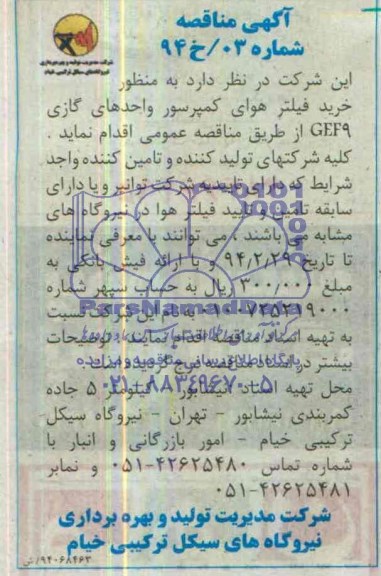 آگهی مناقصه
شماره ۰۳/خ۹۴
شرکت مدیریت تولید و بهره‌برداری
نیروگاه‌های سیکل ترکیبی خیام
این شرکت در نظر دارد به منظور
خرید فیلتر هوای کمپرسور واحدهای گازی
GEF9 از طریق مناقصه عمومی اقدام نماید .
کلیه شرکتهای تولید کننده و تامین کننده واجد
شرایط که دارای تاییدیه شرکت توانیر و یا دارای
سابقه تامین و تایید فیلتر هوا در نیروگاه های
مشابه می باشند ، می توانند با معرفی نماینده
تا تاریخ ۹۴/۲/۲۹ و با ارائه فیش بانکی به
مبلغ ۳۰۰/۰۰۰ ریال به حساب سپهر شماره
به نام این شرکت نسبت
به تهیه اسناد مناقصه اقدام نمایند . توضیحات
بیشتر در اسناد مناقصه درج گردیده است .
محل تهیه اسناد : نیشابور - کیلومتر ۵ جاده
کمربندی نیشابور - تهران - نیروگاه سیکل
ترکیبی خیام - امور بازرگانی و انبار با
شماره تماس ۴۲۶۲۵۴۸۰-۰۵۱ و نمابر
۴۲۶۲۵۴۸۱-۰۵۱
شرکت مدیریت تولید و بهره برداری
نیروگاه های سیکل ترکیبی خیام
۹۴۰۶۸۴۶۳/ش
ParsNamadData
پایگاه اطلاع رسانی مناقصه و مزایده
۰۲۱-۸۸۳۴۹۶۷۰-۵